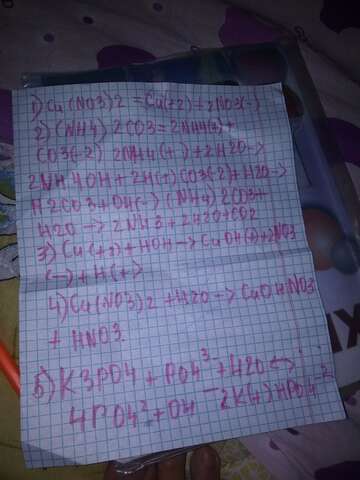 1) Cu(NO3)2 = Cu(+2)+2NO3(-)
2) (NH4) 2CO3 = 2NH4(+) +
CO3(-2) 2NH4(+) + 2H2O ->
2NH4OH + 2H(+) CO3(-2) + H2O ->
H2CO3 + OH(-) (NH4) 2CO3 +
H2O -> 2NH3 + 2H2O + CO2
3) Cu(+2) + HOH -> CuOH(+) + 2NO3
(-) + H(+)
4) Cu(NO3)2 + H2O -> CuOHNO3
+ HNO3.
Б) K3PO4 + PO4³⁻ + H2O <->
HPO4² + OH⁻ 2K(+) HPO4⁻²